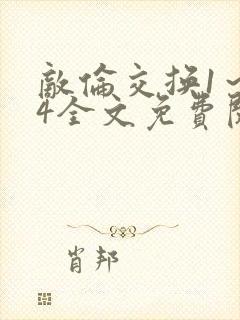 敵倫交换1～
4全文免費閱
肖邦